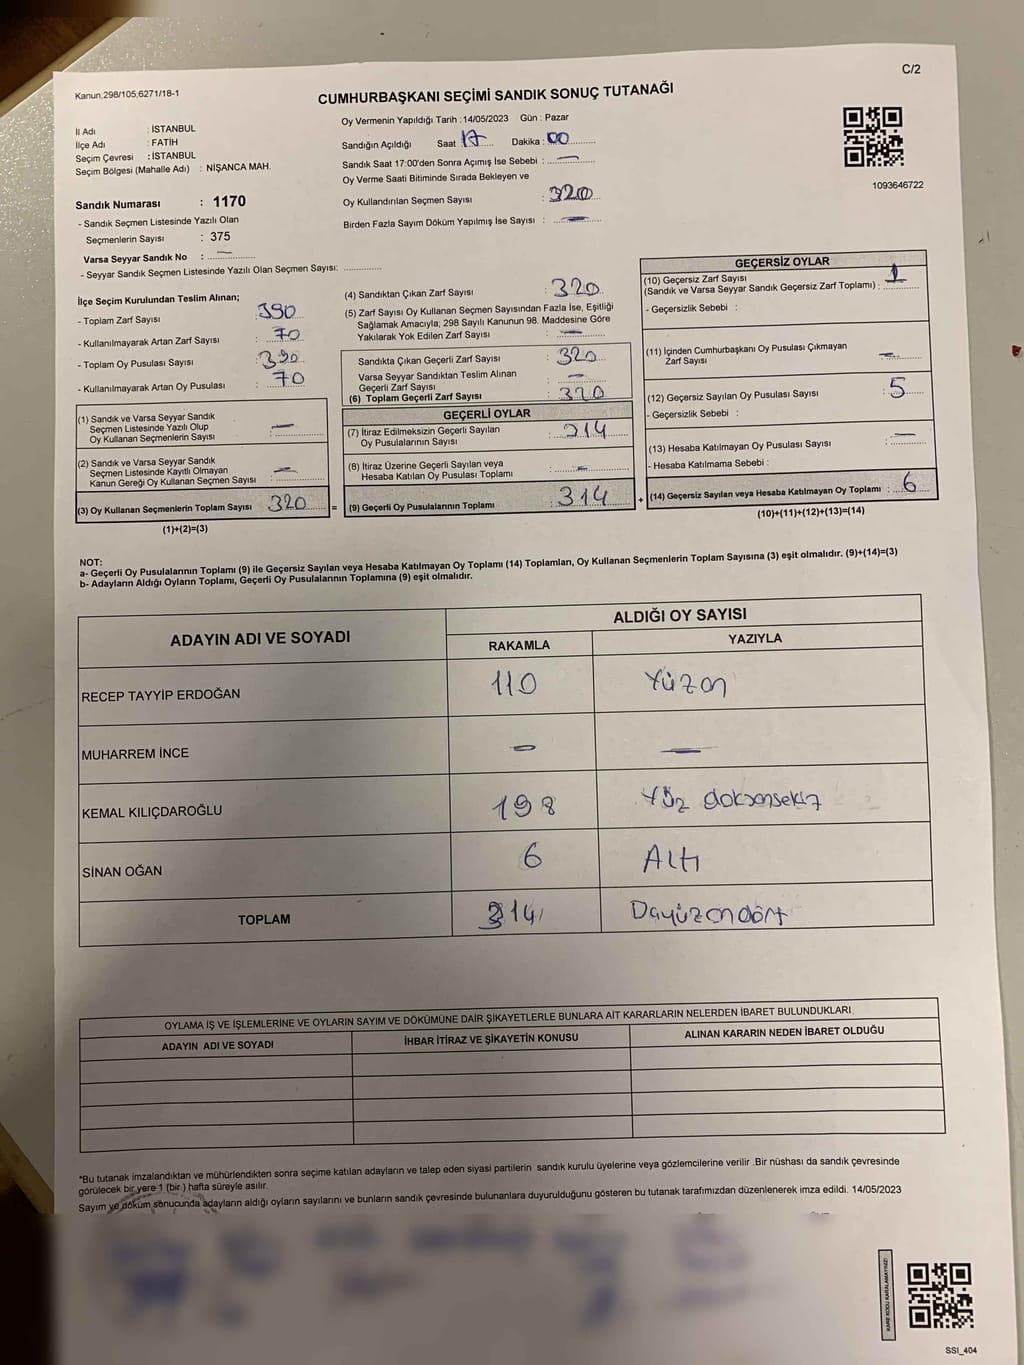 C/2
Kanun;298/105;6271/18-1
CUMHURBAŞKANI SEÇİMİ SANDIK SONUÇ TUTANAĞI
İl Adı : İSTANBUL
İlçe Adı : FATİH
Seçim Çevresi : İSTANBUL
Seçim Bölgesi (Mahalle Adı) : NİŞANCA MAH.
Oy Vermenin Yapıldığı Tarih :14/05/2023 Gün : Pazar
Sandığın Açıldığı Saat 17 Dakika : 00
Sandık Saat 17:00'den Sonra Açımış İse Sebebi : —
Oy Verme Saati Bitiminde Sırada Bekleyen ve
Oy Kullandırılan Seçmen Sayısı : 320
Birden Fazla Sayım Döküm Yapılmış İse Sayısı : —
1093646722
Sandık Numarası : 1170
- Sandık Seçmen Listesinde Yazılı Olan
Seçmenlerin Sayısı : 375
Varsa Seyyar Sandık No : —
- Seyyar Sandık Seçmen Listesinde Yazılı Olan Seçmen Sayısı: ..............
İlçe Seçim Kurulundan Teslim Alınan;
- Toplam Zarf Sayısı : 390
- Kullanılmayarak Artan Zarf Sayısı : 70
- Toplam Oy Pusulası Sayısı : 390
- Kullanılmayarak Artan Oy Pusulası : 70
(1) Sandık ve Varsa Seyyar Sandık
Seçmen Listesinde Yazılı Olup
Oy Kullanan Seçmenlerin Sayısı : —
(2) Sandık ve Varsa Seyyar Sandık
Seçmen Listesinde Kayıtlı Olmayan
Kanun Gereği Oy Kullanan Seçmen Sayısı : —
(3) Oy Kullanan Seçmenlerin Toplam Sayısı 320
(1)+(2)=(3)
=
(4) Sandıktan Çıkan Zarf Sayısı : 320
(5) Zarf Sayısı Oy Kullanan Seçmen Sayısından Fazla İse, Eşitliği
Sağlamak Amacıyla; 298 Sayılı Kanunun 98. Maddesine Göre
Yakılarak Yok Edilen Zarf Sayısı : —
Sandıkta Çıkan Geçerli Zarf Sayısı : 320
Varsa Seyyar Sandıktan Teslim Alınan
Geçerli Zarf Sayısı : —
(6) Toplam Geçerli Zarf Sayısı : 320
GEÇERLİ OYLAR
(7) İtiraz Edilmeksizin Geçerli Sayılan
Oy Pusulalarının Sayısı : 314
(8) İtiraz Üzerine Geçerli Sayılan veya
Hesaba Katılan Oy Pusulası Toplamı : —
(9) Geçerli Oy Pusulalarının Toplamı : 314
+
GEÇERSİZ OYLAR
(10) Geçersiz Zarf Sayısı
(Sandık ve Varsa Seyyar Sandık Geçersiz Zarf Toplamı) : 1
- Geçersizlik Sebebi :
(11) İçinden Cumhurbaşkanı Oy Pusulası Çıkmayan
Zarf Sayısı : —
(12) Geçersiz Sayılan Oy Pusulası Sayısı : 5
- Geçersizlik Sebebi :
(13) Hesaba Katılmayan Oy Pusulası Sayısı : —
- Hesaba Katılmama Sebebi :
(14) Geçersiz Sayılan veya Hesaba Katılmayan Oy Toplamı : 6
(10)+(11)+(12)+(13)=(14)
NOT:
a- Geçerli Oy Pusulalarının Toplamı (9) ile Geçersiz Sayılan veya Hesaba Katılmayan Oy Toplamı (14) Toplamları, Oy Kullanan Seçmenlerin Toplam Sayısına (3) eşit olmalıdır. (9)+(14)=(3)
b- Adayların Aldığı Oyların Toplamı, Geçerli Oy Pusulalarının Toplamına (9) eşit olmalıdır.
ADAYIN ADI VE SOYADI
ALDIĞI OY SAYISI
RAKAMLA YAZIYLA
RECEP TAYYİP ERDOĞAN 110 Yüzon
MUHARREM İNCE — —
KEMAL KILIÇDAROĞLU 198 Yüz doksansekiz
SİNAN OĞAN 6 Altı
TOPLAM 314
OYLAMA İŞ VE İŞLEMLERİNE VE OYLARIN SAYIM VE DÖKÜMÜNE DAİR ŞİKAYETLERLE BUNLARA AİT KARARLARIN NELERDEN İBARET BULUNDUKLARI
ADAYIN ADI VE SOYADI İHBAR İTİRAZ VE ŞİKAYETİN KONUSU ALINAN KARARIN NEDEN İBARET OLDUĞU
*Bu tutanak imzalandıktan ve mühürlendikten sonra seçime katılan adayların ve talep eden siyasi partilerin sandık kurulu üyelerine veya gözlemcilerine verilir .Bir nüshası da sandık çevresinde
görülecek bir yere 1 (bir ) hafta süreyle asılır.
Sayım ve döküm sonucunda adayların aldığı oyların sayılarını ve bunların sandık çevresinde bulunanlara duyurulduğunu gösteren bu tutanak tarafımızdan düzenlenerek imza edildi. 14/05/2023
KARE KODU KARALAMAYINIZ!
SSI_404